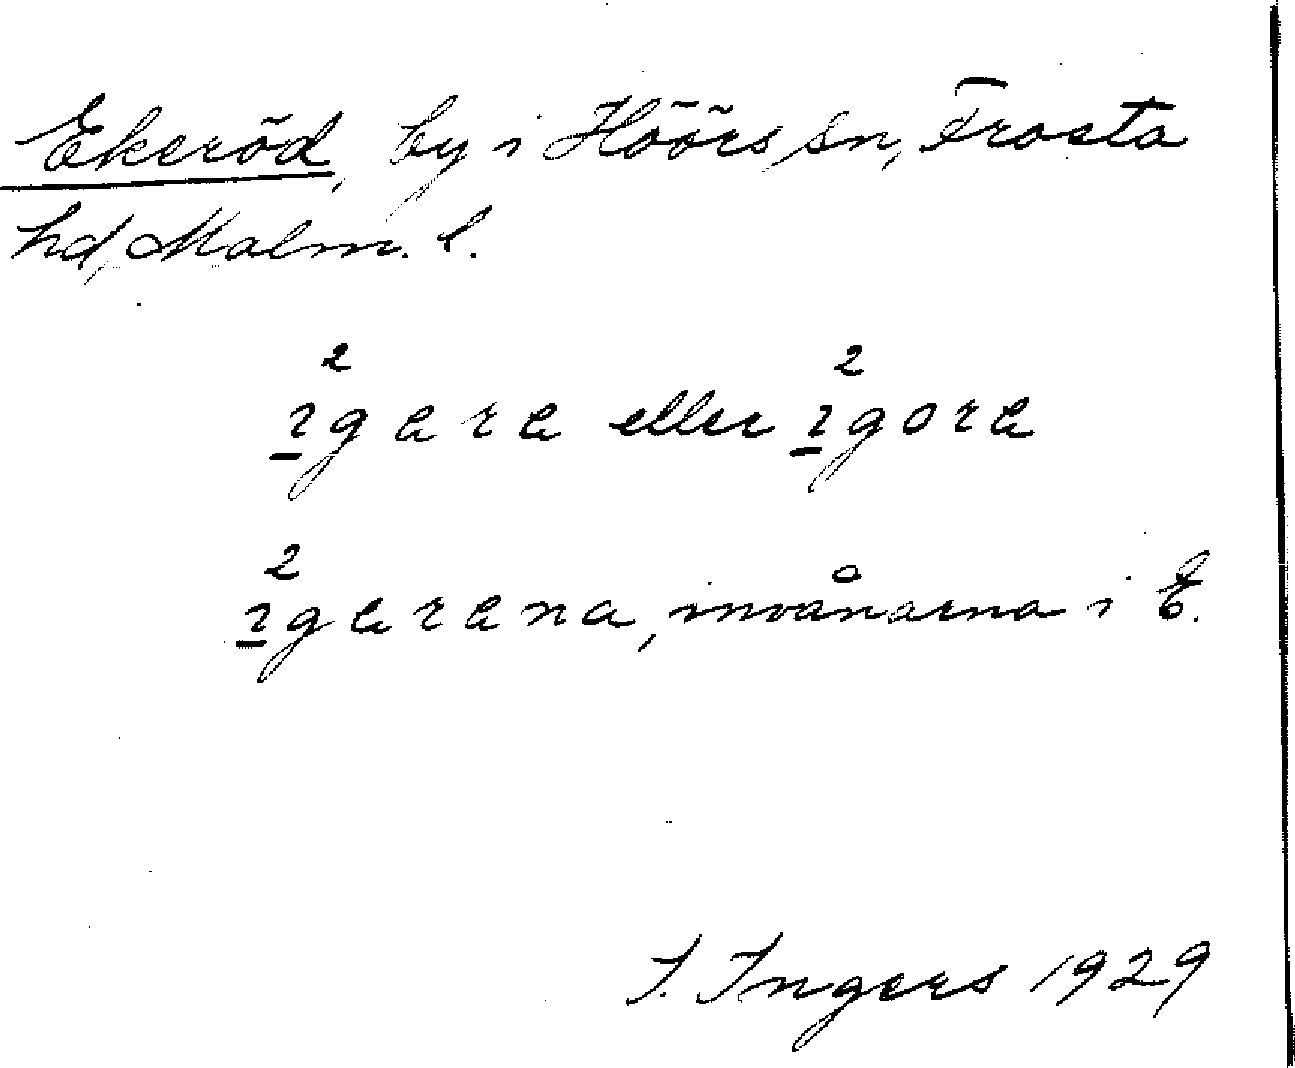 Ekeröd, by i Höörs sn, Frosta
hd, Malm. l.
ı̱²gara eller ı̱²gora
ı̱²garana, invånarna i E.
I. Ingers 1929